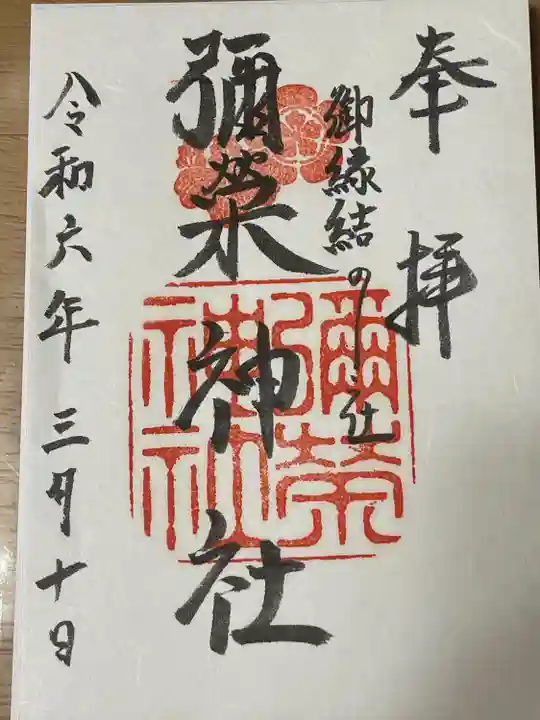 奉拝
御縁結の社
彌栄神社
彌榮神社
令和六年三月十日